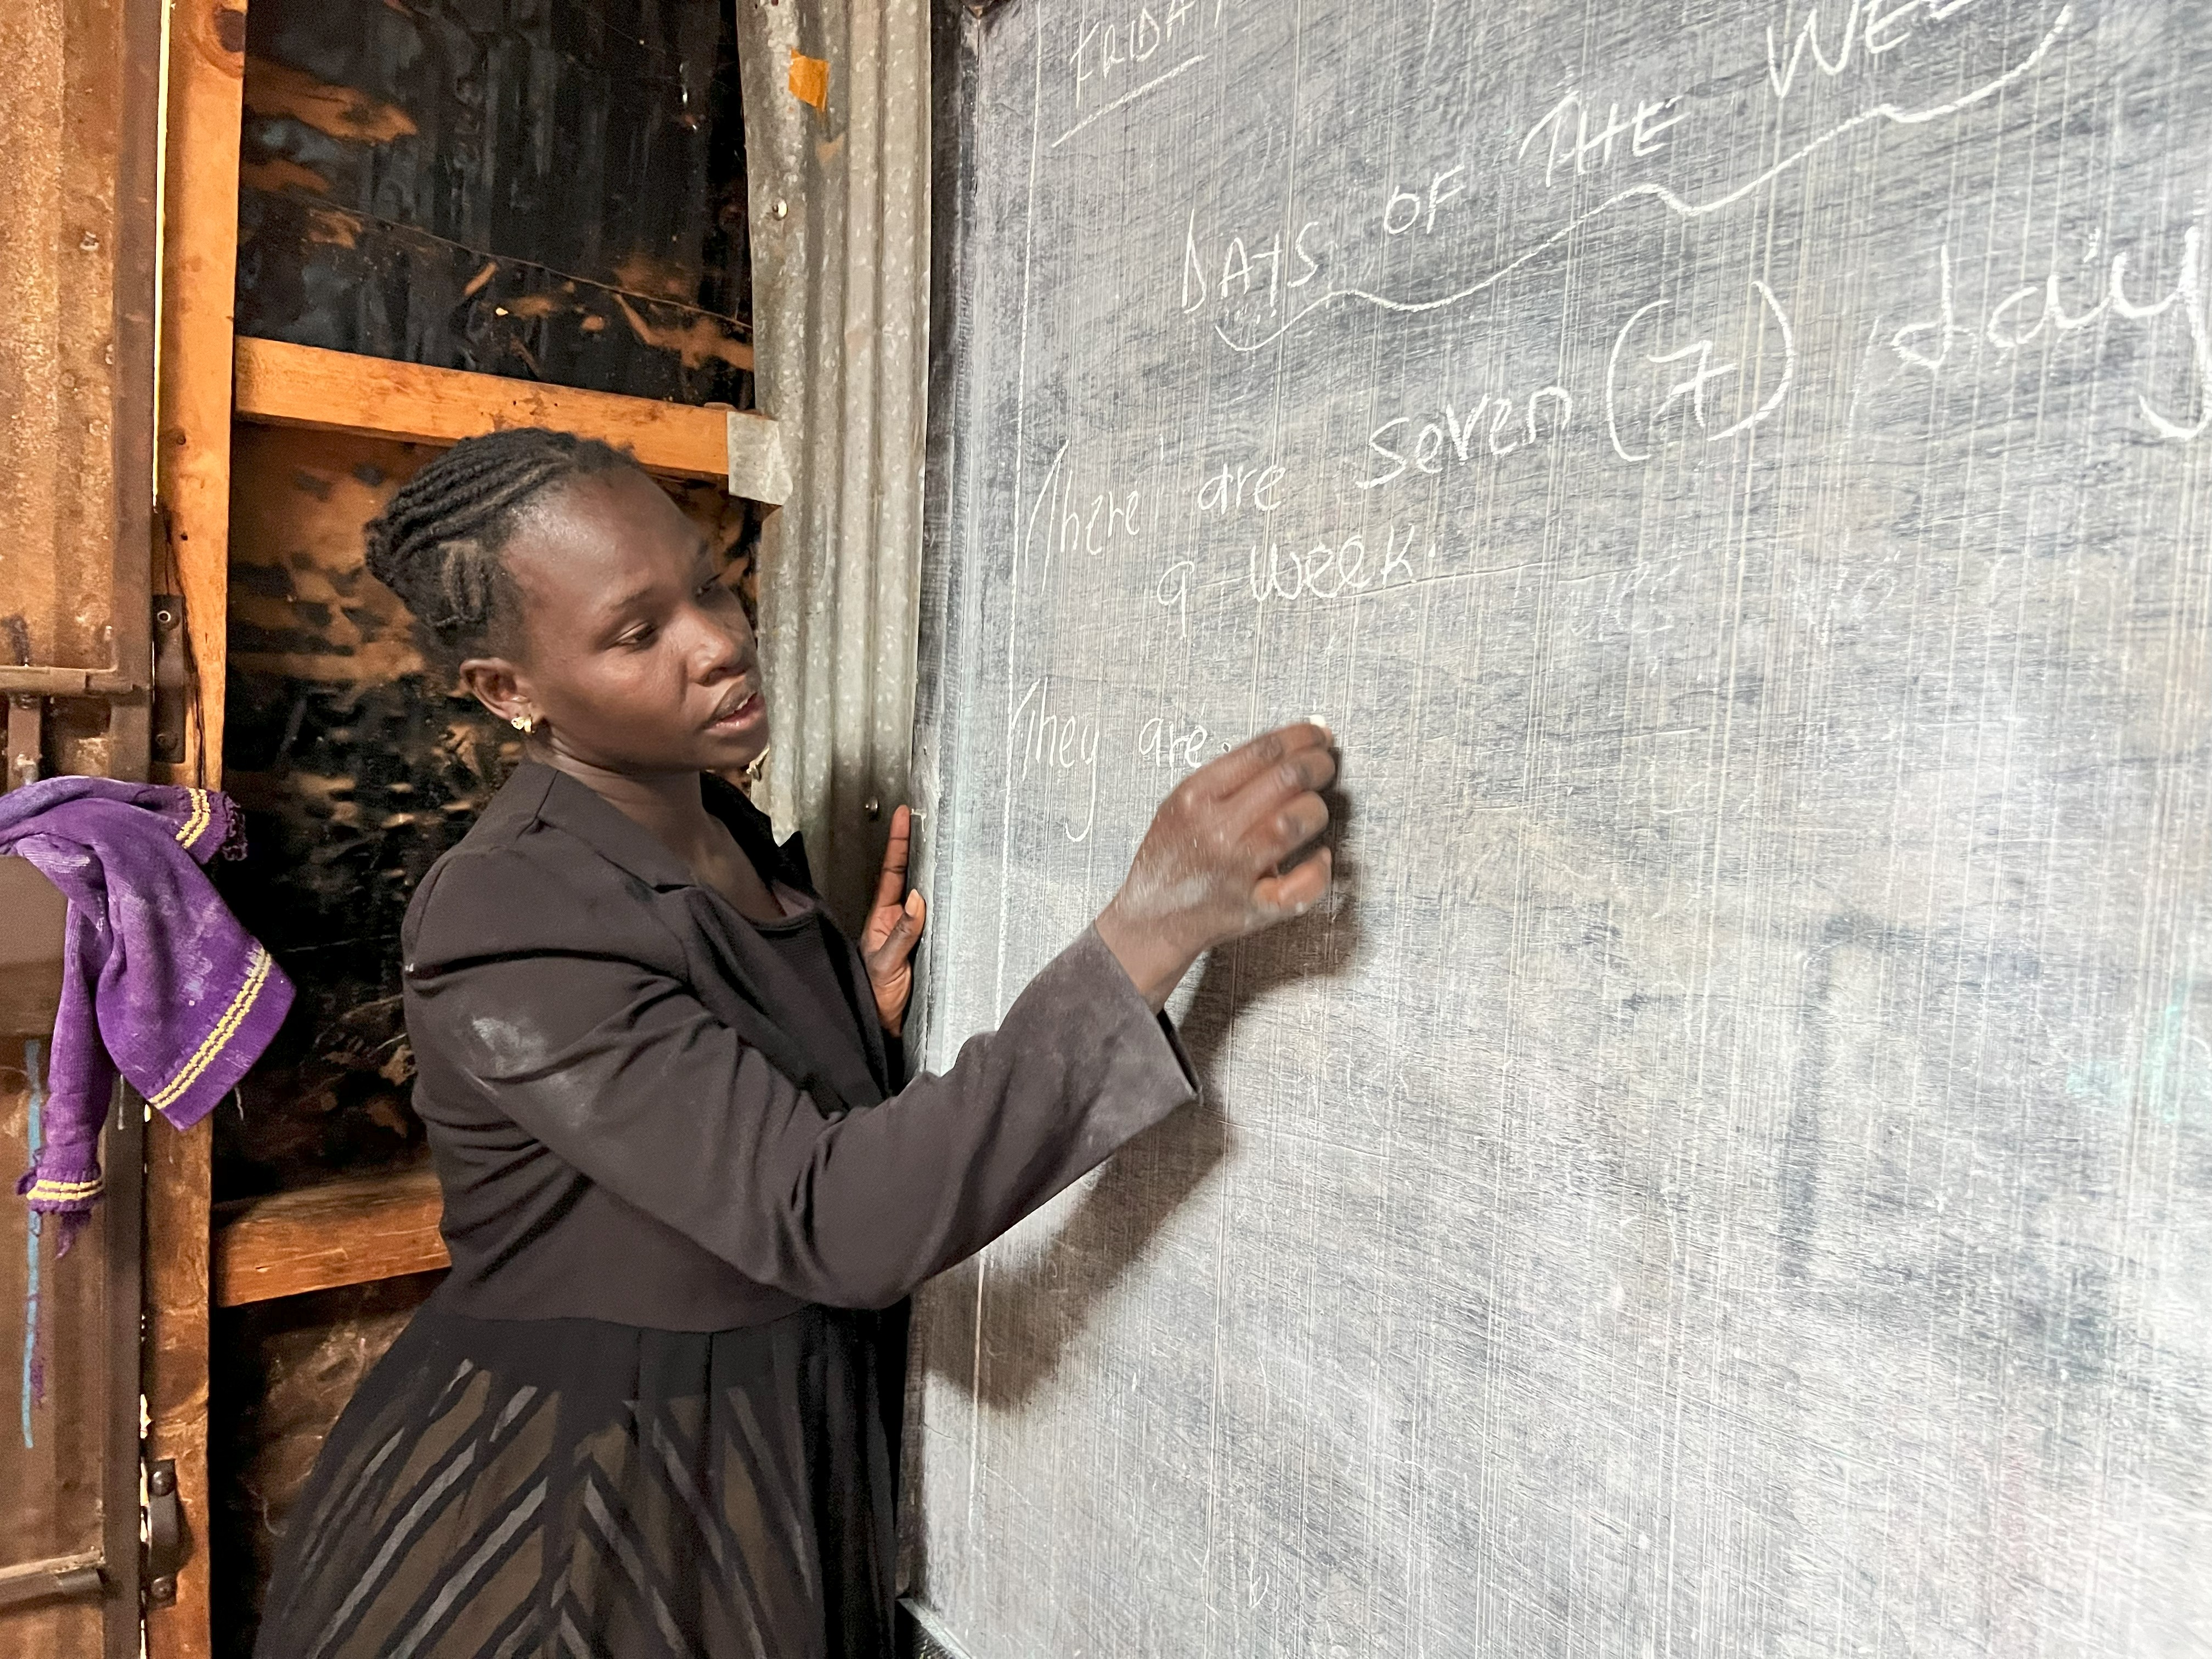 FRIDAY
DAYS OF THE WEE
There are seven (7) day
a week.
They are: